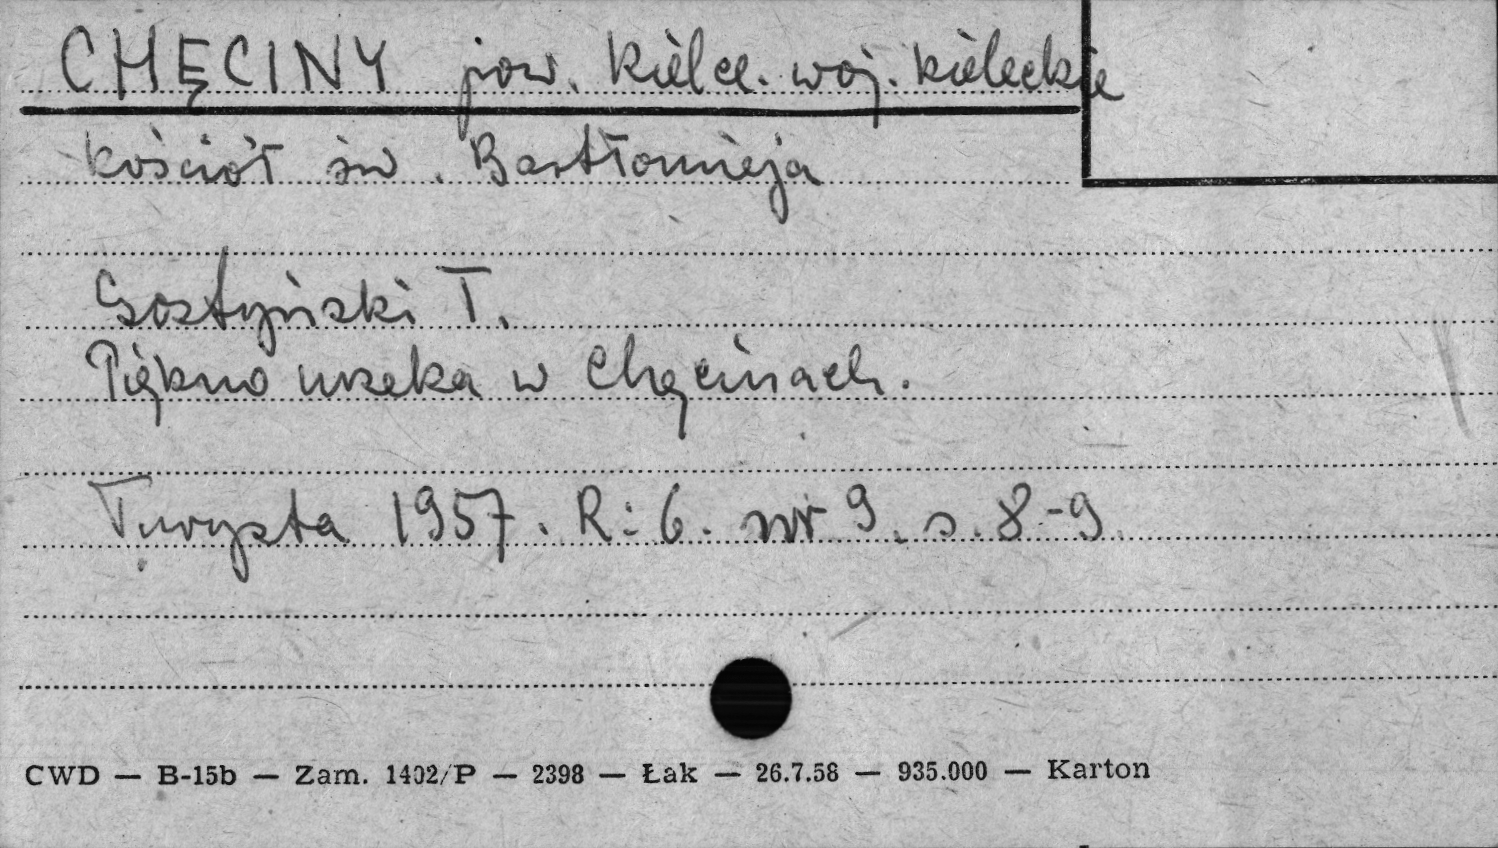 CHĘCINY pow. Kielce. woj. kieleckie
kościół św. Bartłomieja
Gostyński T.
Piękno urzeka w Chęcinach.
Turysta 1957. R: 6. nr 9. s. 8-9.
CWD — B-15b — Zam. 1402/P — 2398 — Łak — 26.7.58 — 935.000 — Karton